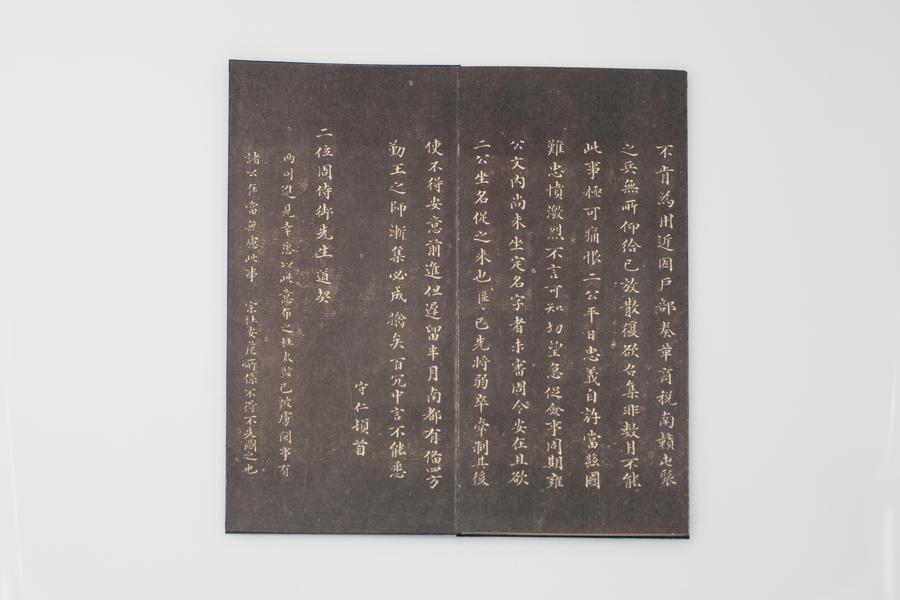 不肯為用近因戶部奏革商稅南贛屯聚
之兵無所仰給已放散復欲召集非數月不能
此事極可痛恨二公平日忠義自許當茲國
難忠憤激烈不言可知切望急促僉事周期雍
公文內尚未坐定名字者未審周今安在且欲
二公坐名促之來也區區已先將弱卒牽制其後
使不得安意前進但遲留半月南都有備四方
勤王之師漸集必成擒矣百冗中言不能悉
守仁頓首
二位周侍御先生道契
兩司進見幸悉以此意布之杜太監已被虜閫事有
諸公在當無慮此事宗社安危所係不得不為閫之也